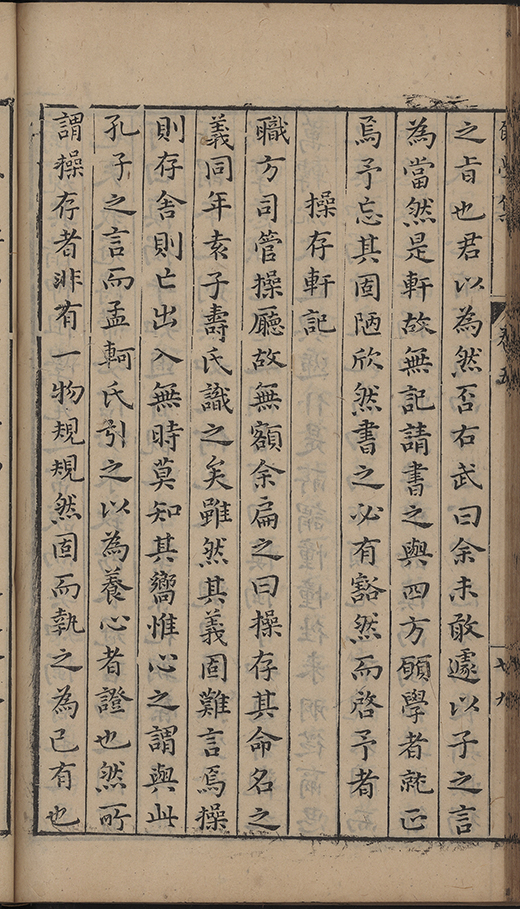 之旨也君以為然否右武曰余未敢遽以子之言
為當然是軒故無記請書之與四方願學者就正
焉予忘其固陋欣然書之必有豁然而啓予者
操存軒記
職方司管操廳故無額余扁之曰操存其命名之
義同年袁子壽氏識之矣雖然其義固難言焉操
則存舍則亡出入無時莫知其嚮惟心之謂與此
孔子之言而孟軻氏引之以為養心者證也然所
謂操存者非有一物規規然固而執之為己有也